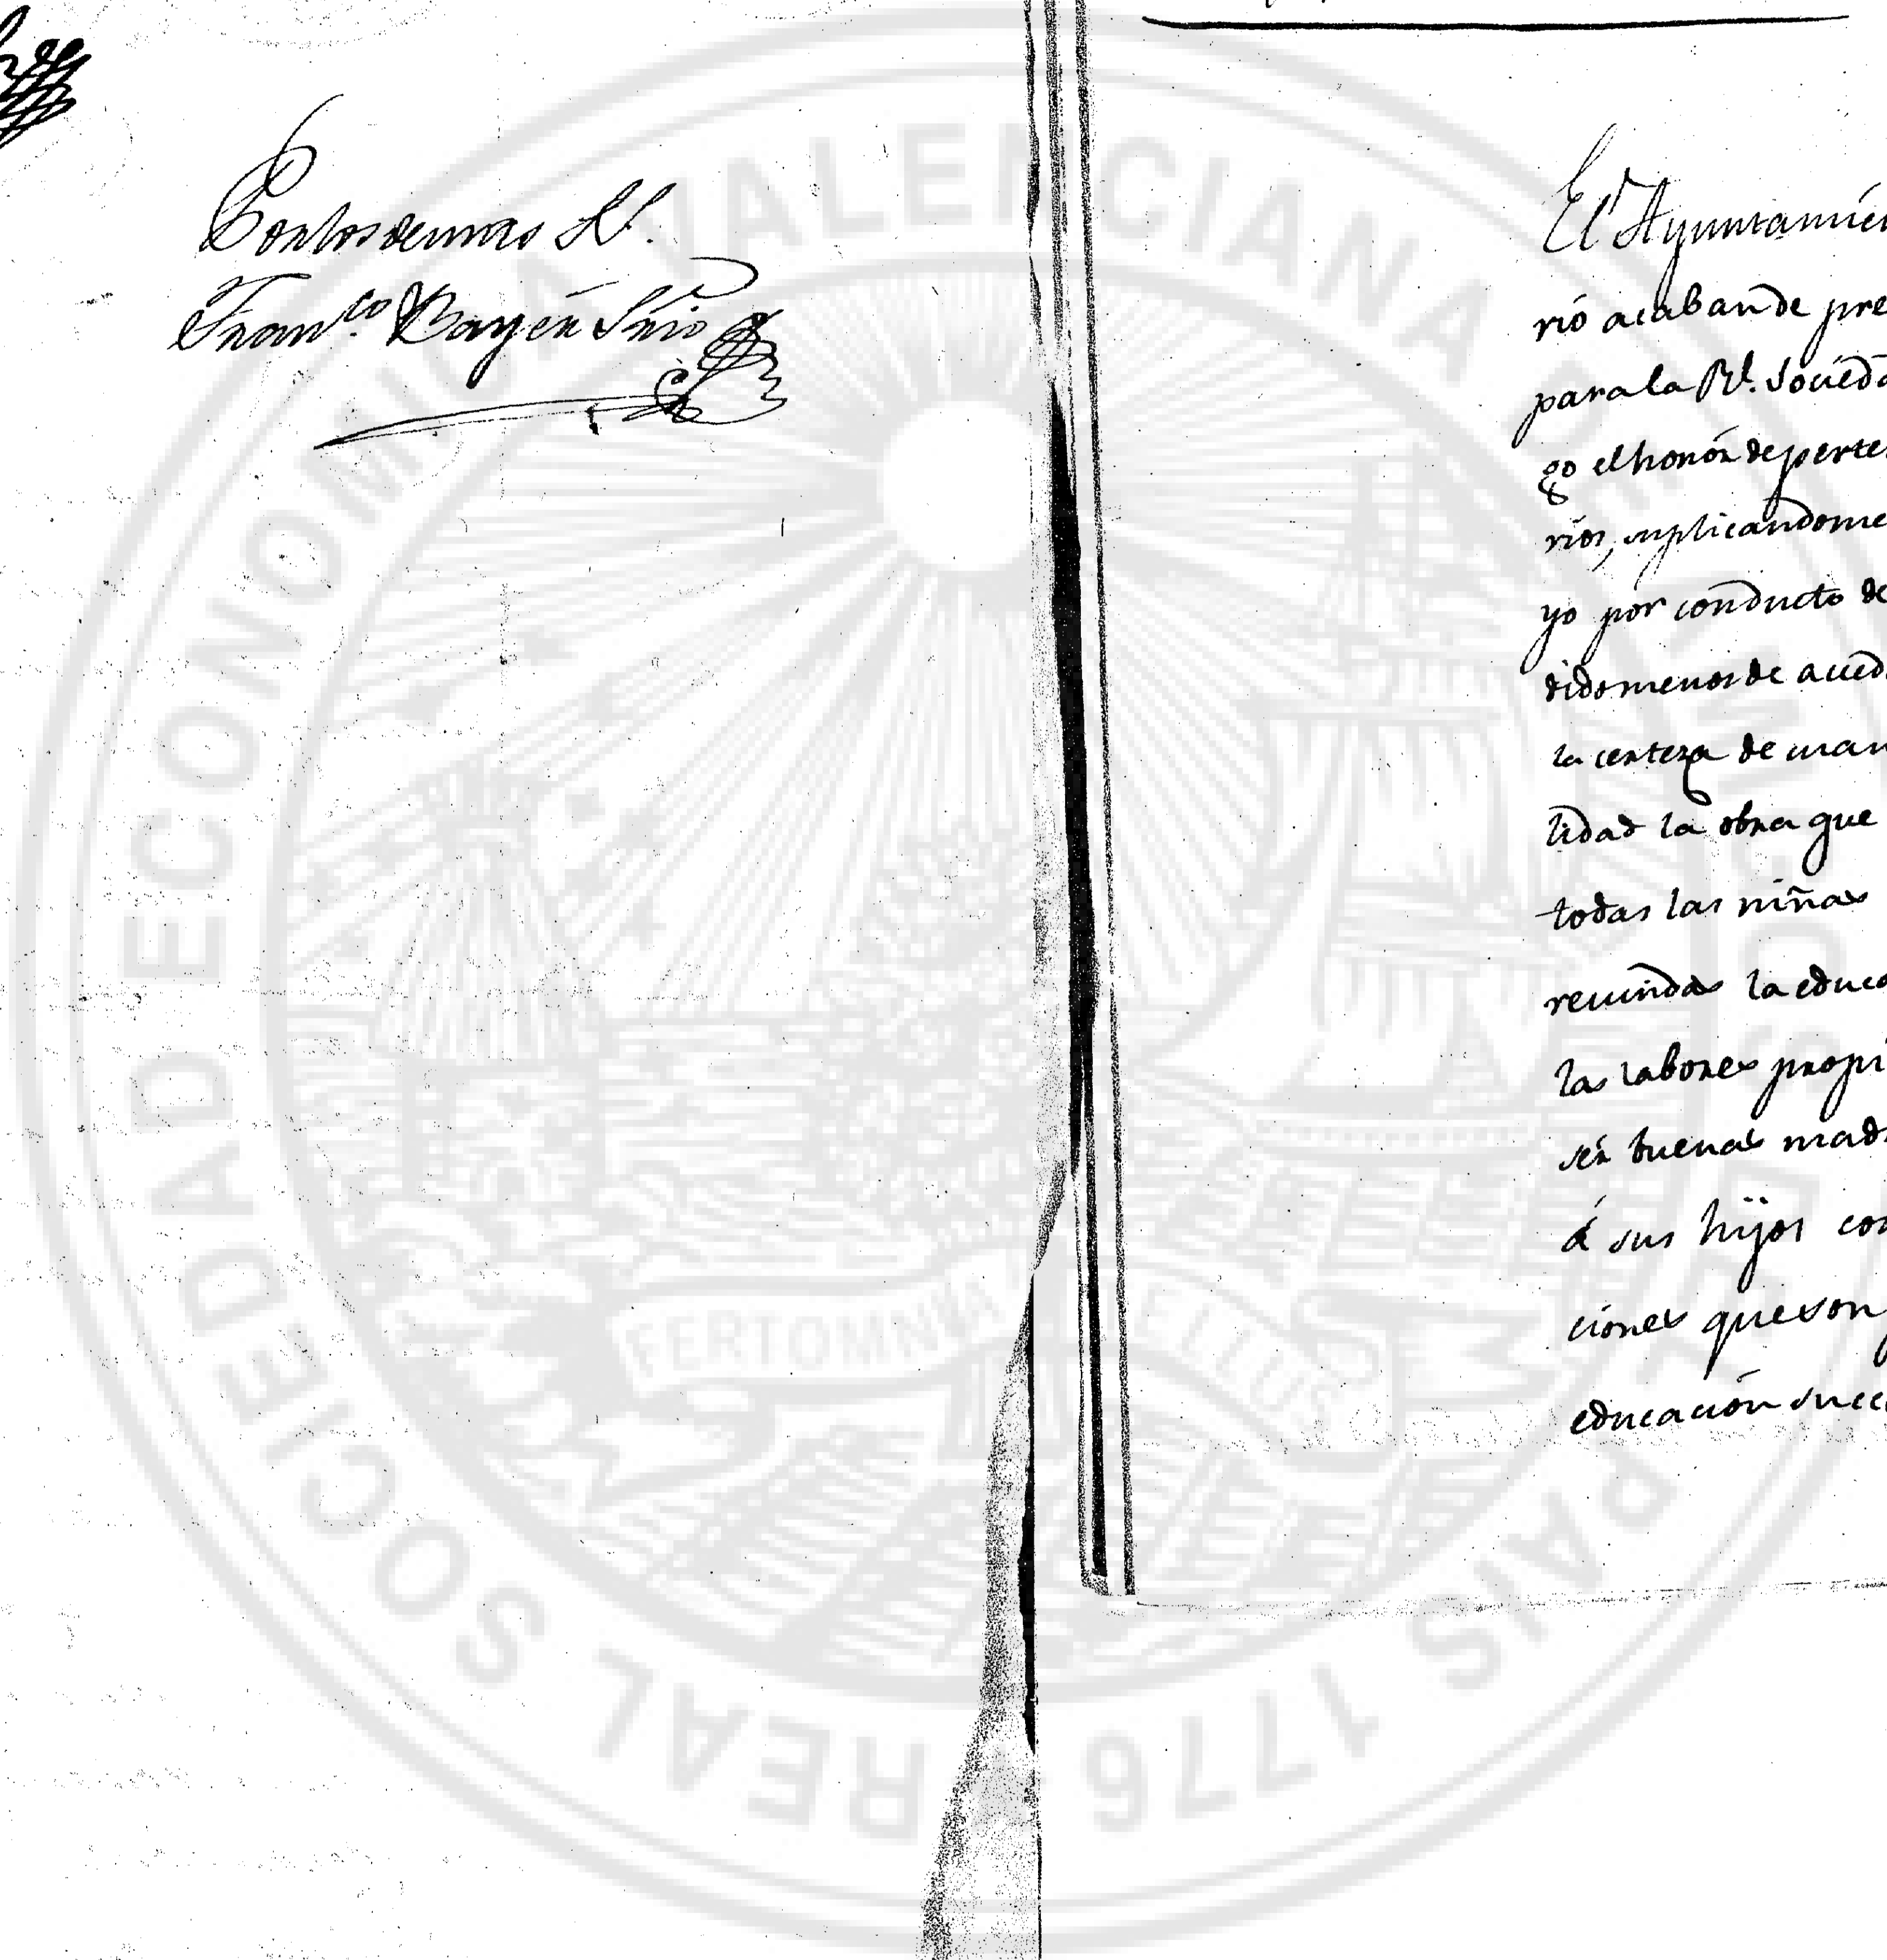 Por los demas Sres.
Franco. Bayén Srio
El Ayuntamien
rió acaban de pre
para la Rl. Socieda
go el honór de perte
rios, suplicandome
yo por conducto de
dido menos de acced
la certeza de man
lidad la obra que
todas las niñas
recivirda la educa
las labores propi
sér buenas mad
á sus hijos con
ciones que son
educación suce
REAL SOCIEDAD ECONOMICA VALENCIANA
PAIS 1776